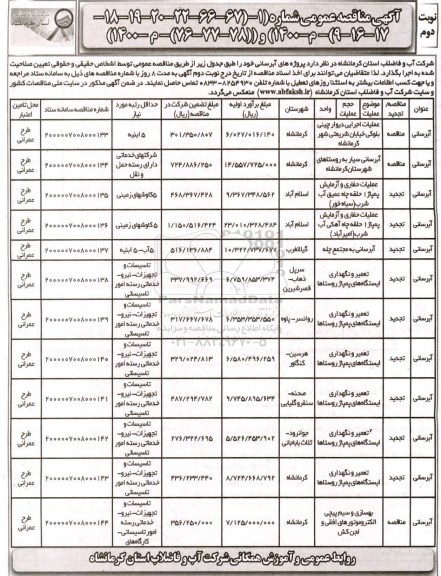 نوبت دوم
آگهی مناقصه عمومی شماره (۱-(۶۷-۶۶-۲۲-۲۰-۱۹-۱۸-
۱۷-۱۶-۹)-م-۱۴۰۰) و ((۷۸-۷۷-۷۶)-م-۱۴۰۰)
شرکت آب و فاضلاب استان کرمانشاه در نظر دارد پروژه های آبرسانی خود را طبق جدول زیر از طریق مناقصه عمومی توسط اشخاص حقیقی و حقوقی تعیین صلاحیت
شده به اجرا بگذارد. لذا متقاضیان می توانند برای اخذ اسناد مناقصه از تاریخ درج نوبت دوم آگهی به مدت ۸ روز با شماره مناقصه های ذیل به سامانه ستاد مراجعه
و یا جهت کسب اطلاعات بیشتر به استثناء روزهای تعطیل با شماره تلفن ۰۸۳۳-۸۲۵۴۹۳۰ تماس حاصل نمایند. در ضمن آگهی مذکور در سایت ملی مناقصات کشور
و سایت شرکت آب و فاضلاب استان کرمانشاه (www.abfaksh.ir) منعکس می‌گردد.
عنوان | مناقصه | موضوع عملیات | حجم عملیات | واحد | شهرستان | مبلغ برآورد اولیه (ریال) | مبلغ تضمین شرکت در مناقصه (ریال) | حداقل رتبه مورد نیاز | شماره مناقصه سامانه ستاد | محل تامین اعتبار
آبرسانی | مناقصه | عملیات اجرایی دیوار چینی بلوکی خیابان شریعتی شهر کرمانشاه | کرمانشاه | ۶/۰۲۷/۰۱۶/۱۴۰ | ۳۰۱/۳۵۰/۸۰۷ | ۵ ابنیه | ۲۰۰۰۰۰۷۰۰۸۰۰۰۱۳۳ | طرح عمرانی
آبرسانی | تجدید | آبرسانی سیار به روستاهای شهرستان کرمانشاه | کرمانشاه | ۱۴/۵۵۷/۷۲۵/۰۰۰ | ۷۲۴/۸۸۶/۲۵۰ | شرکتهای خدماتی دارای رسته حمل و نقل | ۲۰۰۰۰۰۷۰۰۸۰۰۰۱۳۴ | طرح عمرانی
آبرسانی | تجدید | عملیات حفاری و آزمایش پمپاژ ۱ حلقه چاه عمیق آب شرب (سیاه خور) | اسلام آباد | ۹/۳۶۷/۳۴۸/۵۶۲ | ۴۶۸/۳۶۷/۴۲۸ | ۵ کاوشهای زمینی | ۲۰۰۰۰۰۷۰۰۸۰۰۰۱۳۵ | طرح عمرانی
آبرسانی | تجدید | عملیات حفاری و آزمایش پمپاژ ۱ حلقه چاه آهکی آب شرب (امیرآباد) | اسلام آباد | ۲۳/۰۱۰/۳۶۸/۴۸۴ | ۱/۱۵۰/۵۱۶/۴۲۴ | ۵ کاوشهای زمینی | ۲۰۰۰۰۰۷۰۰۸۰۰۰۱۳۶ | طرح عمرانی
آبرسانی | تجدید | آبرسانی به مجتمع چله | گیلانغرب | ۱۰/۳۲۲/۷۳۷/۶۷۷ | ۵۱۶/۱۳۶/۸۸۴ | ۵ آب-۵ ابنیه | ۲۰۰۰۰۰۷۰۰۸۰۰۰۱۳۷ | طرح عمرانی
آبرسانی | تجدید | تعمیر و نگهداری ایستگاه‌های پمپاژ روستاها | سرپل ذهاب-قصرشیرین | ۶/۷۵۹/۸۵۳/۳۷۴ | ۳۳۷/۹۹۲/۶۶۹ | تاسیسات و تجهیزات-نیرو-خدماتی رسته امور تاسیساتی | ۲۰۰۰۰۰۷۰۰۸۰۰۰۱۳۸ | طرح عمرانی
آبرسانی | تجدید | تعمیر و نگهداری ایستگاه‌های پمپاژ روستاها | روانسر-پاوه | ۶/۳۵۳/۳۵۳/۵۵۰ | ۳۱۷/۶۶۷/۶۷۸ | تاسیسات و تجهیزات-نیرو-خدماتی رسته امور تاسیساتی | ۲۰۰۰۰۰۷۰۰۸۰۰۰۱۳۹ | طرح عمرانی
آبرسانی | تجدید | تعمیر و نگهداری ایستگاه‌های پمپاژ روستاها | هرسین-کنگاور | ۶/۵۸۰/۴۹۶/۲۵۹ | ۳۲۹/۰۲۴/۸۱۳ | تاسیسات و تجهیزات-نیرو-خدماتی رسته امور تاسیساتی | ۲۰۰۰۰۰۷۰۰۸۰۰۰۱۴۰ | طرح عمرانی
آبرسانی | تجدید | تعمیر و نگهداری ایستگاه‌های پمپاژ روستاها | صحنه-سنقر و کلیایی | ۹/۷۴۵/۸۹۵/۶۳۴ | ۴۸۷/۲۹۴/۷۸۲ | تاسیسات و تجهیزات-نیرو-خدماتی رسته امور تاسیساتی | ۲۰۰۰۰۰۷۰۰۸۰۰۰۱۴۱ | طرح عمرانی
آبرسانی | تجدید | تعمیر و نگهداری ایستگاه‌های پمپاژ روستاها | جوانرود-ثلاث باباجانی | ۵/۵۲۶/۴۵۳/۹۰۲ | ۲۷۶/۳۲۲/۶۹۵ | تاسیسات و تجهیزات-نیرو-خدماتی رسته امور تاسیساتی | ۲۰۰۰۰۰۷۰۰۸۰۰۰۱۴۲ | طرح عمرانی
آبرسانی | تجدید | تعمیر و نگهداری ایستگاه‌های پمپاژ روستاها | کرمانشاه | ۸/۷۲۴/۶۶۸/۷۹۲ | ۴۳۶/۲۳۳/۴۴۰ | تاسیسات و تجهیزات-نیرو-خدماتی رسته امور تاسیساتی | ۲۰۰۰۰۰۷۰۰۸۰۰۰۱۴۳ | طرح عمرانی
آبرسانی | مناقصه | بهسازی و سیم پیچی الکتروموتورهای افقی و لجن کش | کرمانشاه | ۷/۱۲۵/۰۰۰/۰۰۰ | ۳۵۶/۲۵۰/۰۰۰ | تاسیسات و تجهیزات-نیرو-خدماتی رسته امور تاسیساتی-کارگاه‌های | ۲۰۰۰۰۰۷۰۰۸۰۰۰۱۴۴ | طرح عمرانی
ParsNamadData
۰۲۱-۸۸۳۴۹۶۷۰-۵
روابط عمومی و آموزش همگانی شرکت آب و فاضلاب استان کرمانشاه